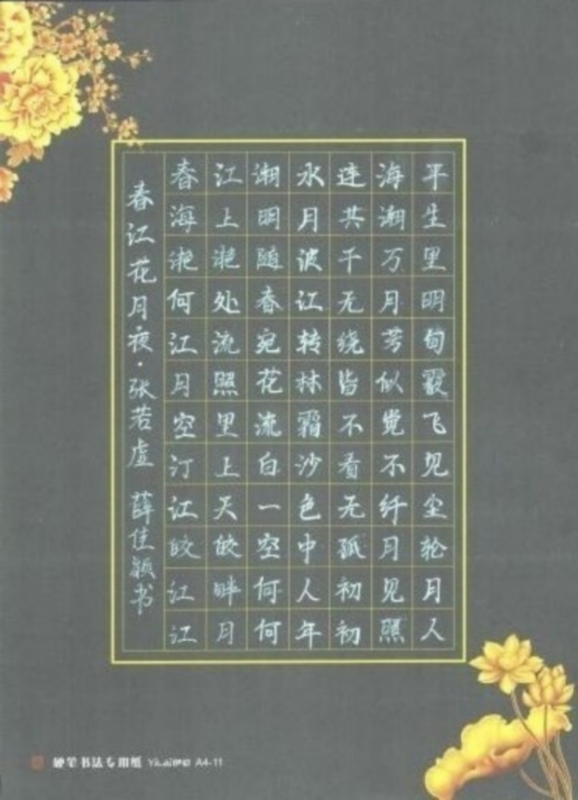 春江潮水连海平
海上明月共潮生
滟滟随波千万里
何处春江无月明
江流宛转绕芳甸
月照花林皆似霰
空里流霜不觉飞
汀上白沙看不见
江天一色无纤尘
皎皎空中孤月轮
江畔何人初见月
江月何年初照人
春江花月夜·张若虚 薛佳颖书
硬笔书法专用纸 A4-11